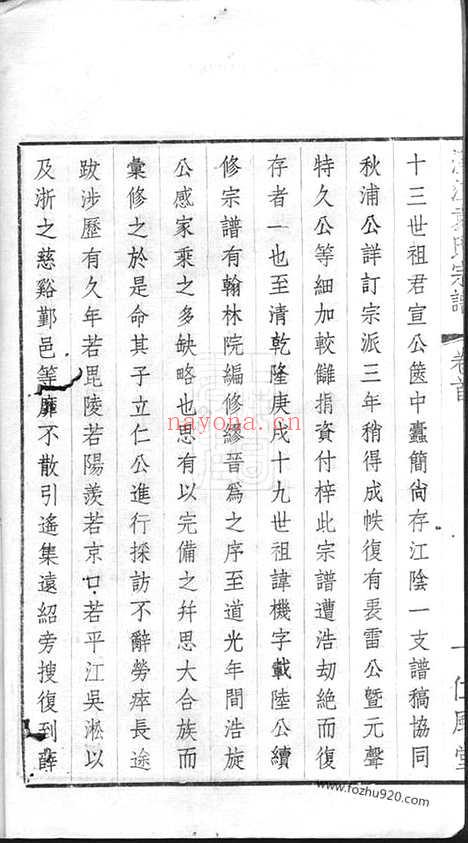 宗譜
卷首
仁風堂
十三世祖君宣公篋中蠹簡尙存江陰一支譜稿協同
秋浦公詳訂宗派三年稍得成帙復有裵雷公暨元聲
特久公等細加較讎捐資付梓此宗譜遭浩劫絕而復
存者一也至清乾隆庚戌十九世祖諱機字載陸公續
修宗譜有翰林院編修繆晉爲之序至道光年間浩旋
公感家乘之多缺略也思有以完備之幷思大合族而
彙修之於是命其子立仁公進行採訪不辭勞瘁長途
跋涉歷有久年若毘陵若陽羨若京口若平江吳淞以
及浙之慈谿鄞邑等靡不散引遙集遠紹旁搜復到薛
nayona.cn
www.fozhu920.com